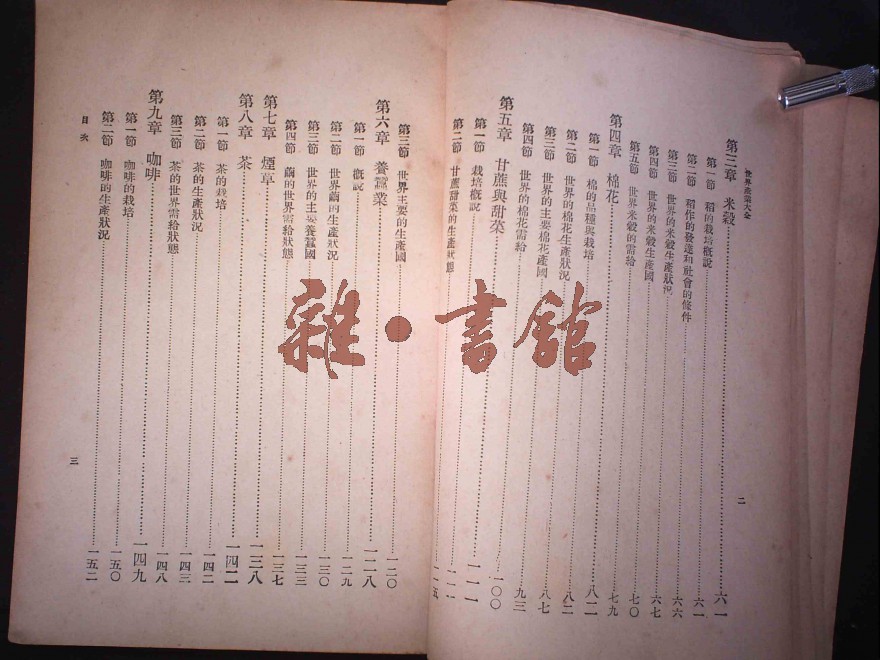 世界產業大全
第三章 米穀 六一
第一節 稻的栽培概說 六一
第二節 稻作的發達和社會的條件 六六
第三節 世界的米穀生產狀況 六七
第四節 世界的米穀生產國 七〇
第五節 世界米穀的需給 七九
第四章 棉花 八二
第一節 棉的品種與栽培 八二
第二節 世界的棉花生產狀況 八七
第三節 世界的主要棉花產國 九三
第四節 世界的棉花需給 一〇〇
第五章 甘蔗與甜菜 一一一
第一節 栽培概說 一一一
第二節 甘蔗甜菜的生產狀態 一一五
二
第三節 世界主要的生產國 一二〇
第六章 養蠶業 一二八
第一節 概說 一二九
第二節 世界繭的生產狀況 一三〇
第三節 世界的主要養蠶國 一三三
第四節 繭的世界需給狀態 一三七
第七章 煙草 一三八
第八章 茶 一四二
第一節 茶的栽培 一四二
第二節 茶的生產狀況 一四三
第三節 茶的世界需給狀態 一四八
第九章 咖啡 一四九
第一節 咖啡的栽培 一五〇
第二節 咖啡的生產狀況 一五二
目次
三
雜·書館